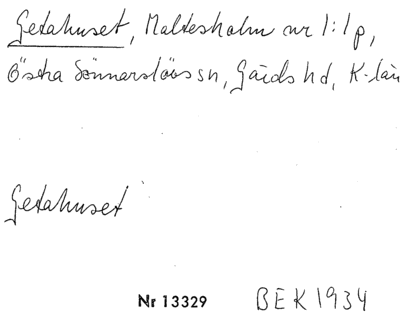 Getahuset, Maltesholm nr 1:1 p,
Östra Sönnarslövs sn, Gärds hd, K-län
Getahuset
Nr 13329 BEK 1934